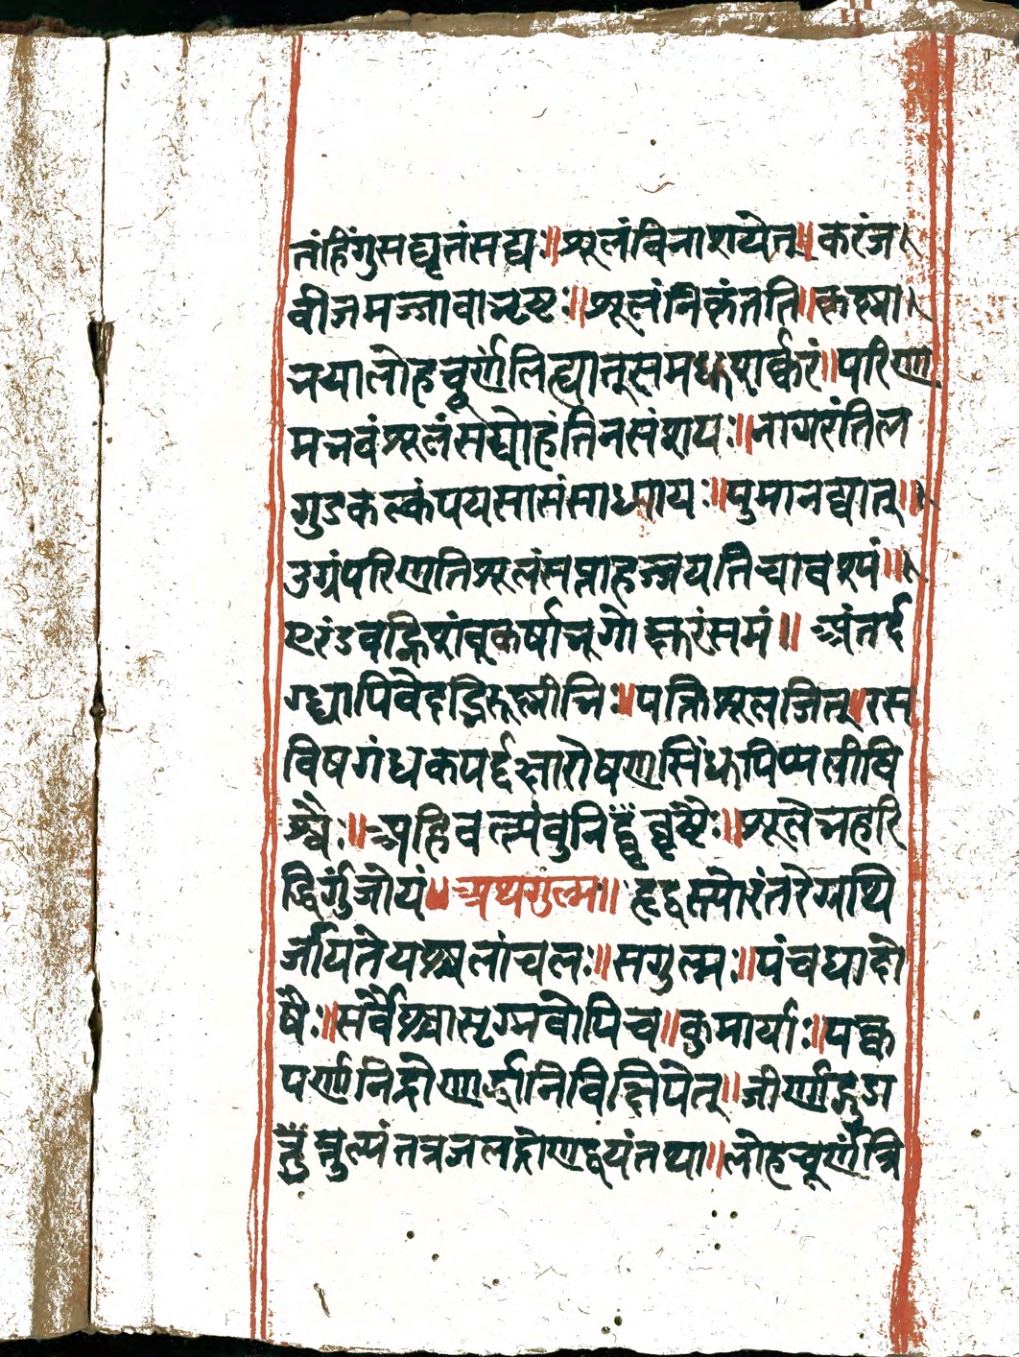 तंहिंगुसद्घृतंसद्यः॥शूलंविनाशयेत्॥करंज
वीजमज्जावानृष्टः॥शूलंनिकृंतति॥कृष्णा
नयालोहचूर्णंलिह्यात्समधुशर्करं॥परिण
मनवंशूलंसद्योहंतिनसंशयः॥नागरंतिल
गुडकल्कंपयसासंसाध्ययः॥पुमानद्यात्॥
उग्रंपरिणतिशूलंसप्ताहज्जयतिचावश्यं॥
एरंडवह्निशंवूकवर्षाभूगोक्षुरंसमं॥अंतर्द
ग्ध्वापिवेदद्भिरुष्णाभिः॥पक्तिशूलजित्॥रस
विषगंधकपर्द्दक्षारोषणसिंधुपिप्पलीवि
श्वैः॥अहिवल्ल्यंवुनिर्घृष्टैः॥शूलेभहरि
र्द्विगुंजोयं॥अथगुल्मः॥हृद्वस्त्योरंतरेग्रंथि
र्जायतेयश्चलाचलः॥सगुल्मः॥पंचधादो
षैः॥सर्वैश्चासृग्भवोपिच॥कुमार्याः॥पक्व
पर्णानिद्रोणार्द्धानिविक्षिपेत्॥जीर्णाद्गुडा
त्तुत्तुल्यंतत्रजलद्रोणद्वयंतथा॥लोहचूर्णंत्रि